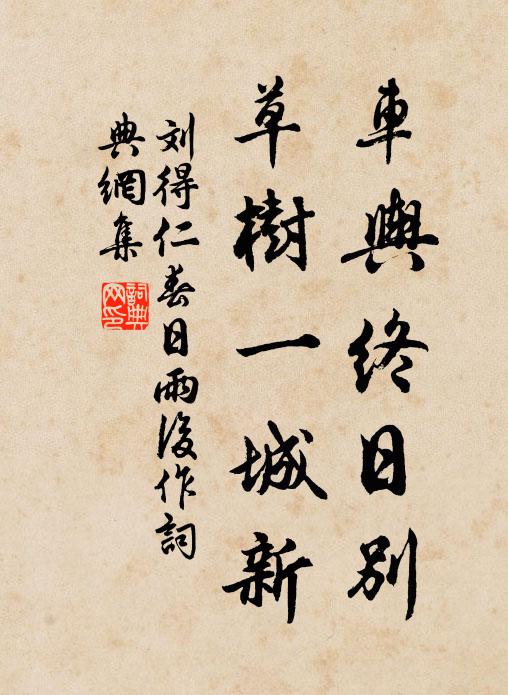 車輿終日別
草樹一城新
刘得仁春日雨後作詞
典網集
詞典
网印